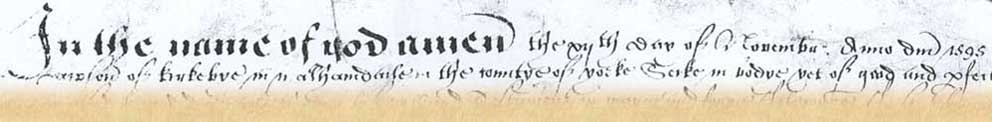 In the name of god amen the xvth day of Novembr. Anno dm 1595
of kirkebye in the countye of yorke Seike in bodye yet of and pfeit